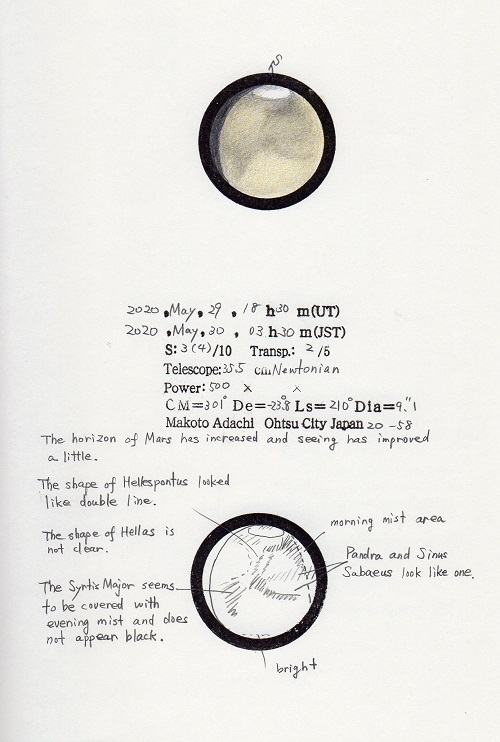 S
2020 , May , 29 , 18 h 30 m(UT)
2020 , May , 30 , 03 h 30 m(JST)
S: 3(4)/10 Transp.: 2/5
Telescope: 35.5 cm Newtonian
Power: 500 × ×
CM=301° De=-23.8° Ls=210° Dia=9."1
Makoto Adachi Ohtsu City Japan 20-58
The horizon of Mars has increased and seeing has improved
a little.
The shape of Hellespontus looked
like double line.
The shape of Hellas is
not clear.
The Syrtis Major seems
to be covered with
evening mist and does
not appear black.
morning mist area
Pandra and Sinus
Sabaeus look like one.
bright